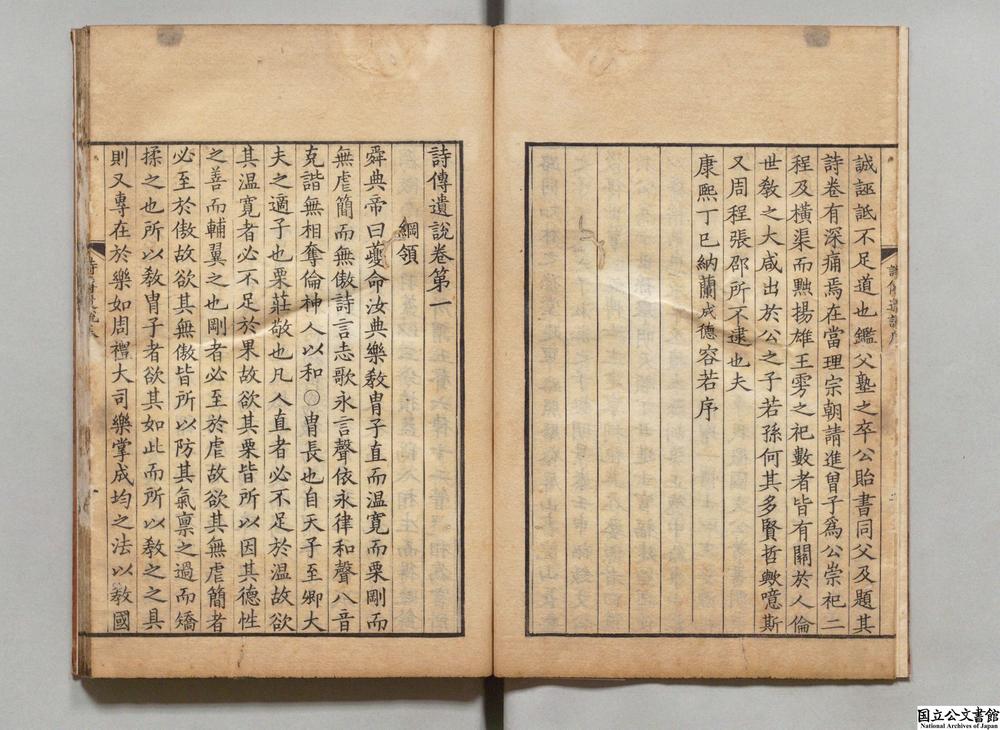 誠誣詆不足道也鑑父塾之卒公貽書同父及題其
詩卷有深痛焉在當理宗朝請進曾子爲公崇祀二
程及橫渠而黜揚雄王雱之祀數者皆有關於人倫
世敎之大咸出於公之子若孫何其多賢哲歟噫斯
又周程張邵所不逮也夫
康熙丁巳納蘭成德容若序
詩傳遺說卷第一
綱領
舜典帝曰夔命汝典樂敎胄子直而溫寛而栗剛而
無虐簡而無傲詩言志歌永言聲依永律和聲八音
克諧無相奪倫神人以和○胄長也自天子至卿大
夫之適子也栗莊敬也凡人直者必不足於溫故欲
其溫寛者必不足於果故欲其栗皆所以因其德性
之善而輔翼之也剛者必至於虐故欲其無虐簡者
必至於傲故欲其無傲皆所以防其氣禀之過而矯
揉之也所以敎胄子者欲其如此而所以敎之之具
則又專在於樂如周禮大司樂掌成均之法以敎國
国立公文書館
National Archives of Japan